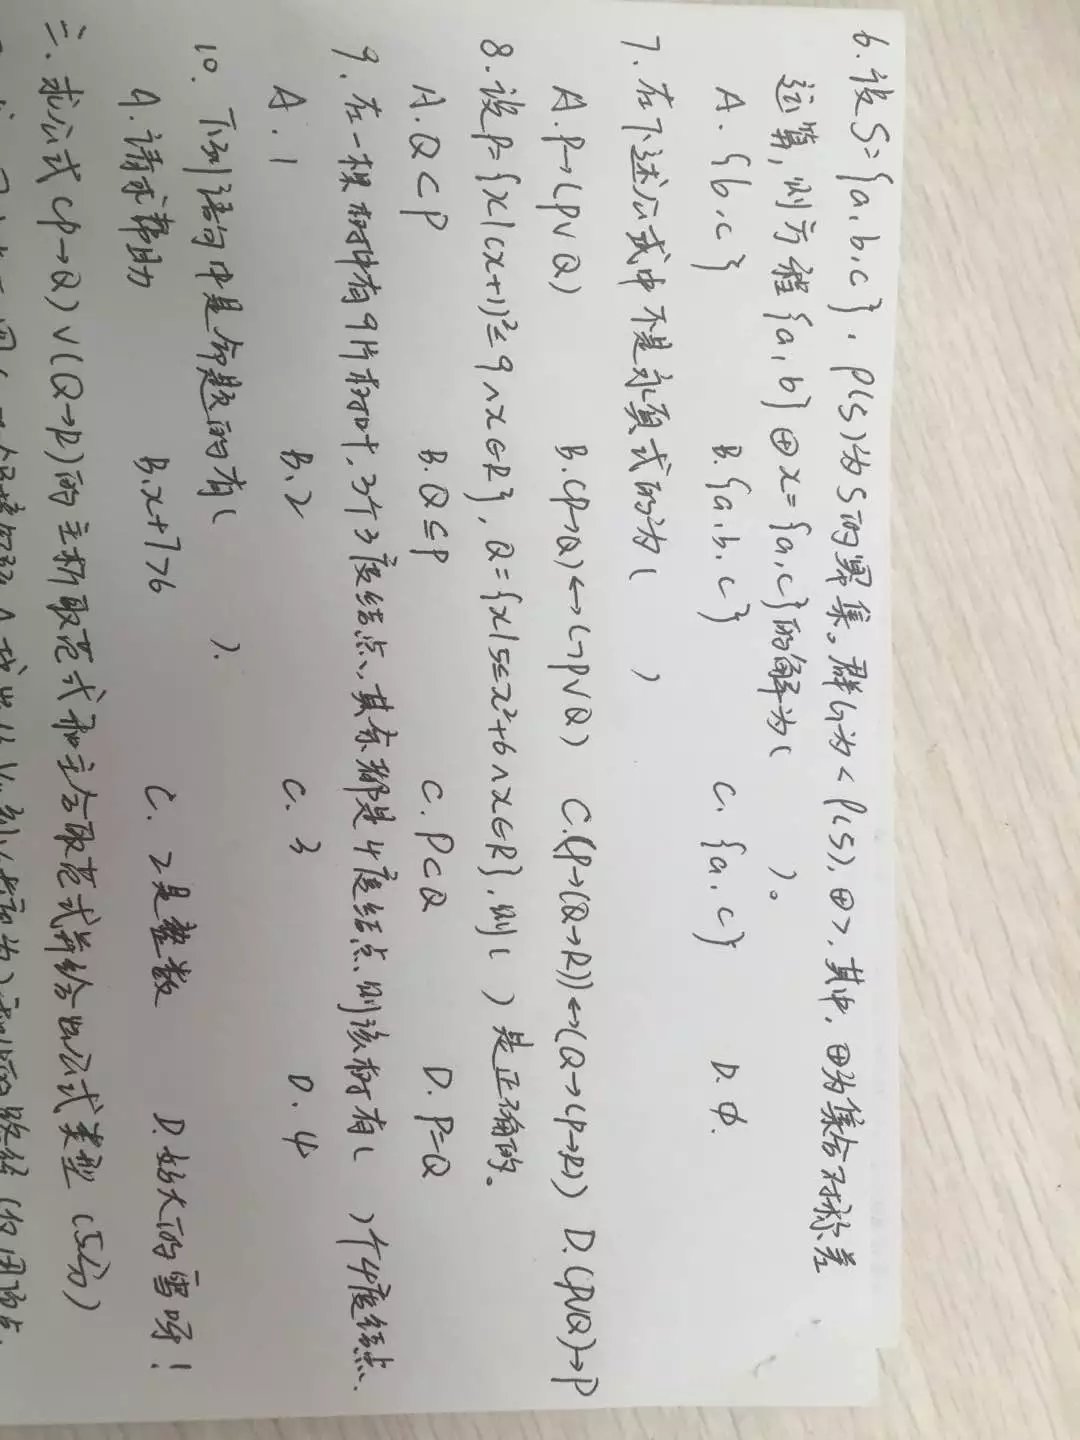 6.设S={a,b,c},P(S)为S的幂集。群G为<P(S),⊕>,其中,⊕为集合对称差
运算,则方程{a,b}⊕x={a,c}的解为( )。
A.{b,c} B.{a,b,c} C.{a,c} D.φ.
7.在下述公式中不是永真式的为( )
A.P→(P∨Q) B.(P→Q)↔(¬P∨Q) C.(P→(Q→R))↔(Q→(P→R)) D.(P∨Q)→P
8.设P={x|(x+1)²≤9∧x∈R},Q={x|5≤x²+6∧x∈R},则( )是正确的。
A.Q⊂P B.Q⊆P C.P⊂Q D.P=Q
9.在一棵树中有9片树叶,3个3度结点,其余都是4度结点则该树有( )个4度结点.
A.1 B.2 C.3 D.4
10.下列语句中是命题的有( ).
A.请求帮助 B.x+7>6 C.2是整数 D.好大的雪呀!
三.求公式(P→Q)∨(Q→R)的主析取范式和主合取范式并给出公式类型(5分)